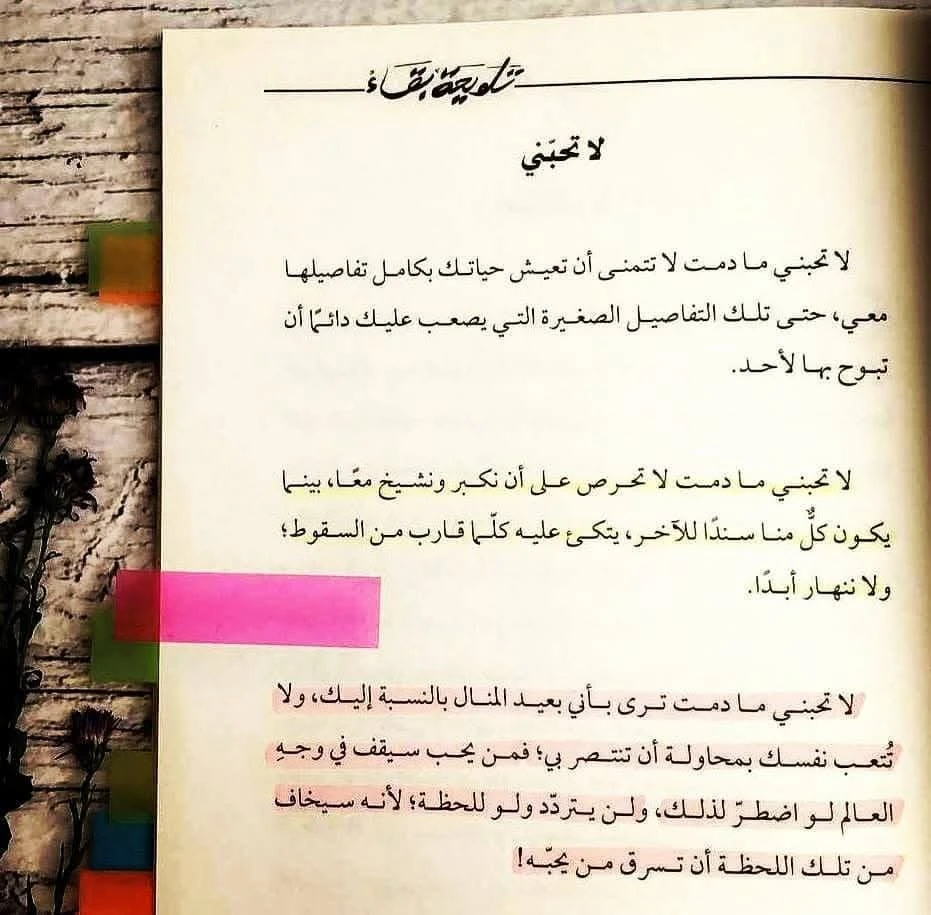 تلويحة بقاء
لا تحبّني
لا تحبني ما دمت لا تتمنى أن تعيش حياتك بكامل تفاصيلها
معي، حتى تلك التفاصيل الصغيرة التي يصعب عليك دائمًا أن
تبوح بها لأحد.
لا تحبني ما دمت لا تحرص على أن نكبر ونشيخ معًا، بينما
يكون كلٌّ منا سندًا للآخر، يتكئ عليه كلّما قارب من السقوط؛
ولا ننهار أبدًا.
لا تحبني ما دمت ترى بأني بعيد المنال بالنسبة إليك، ولا
تُتعب نفسك بمحاولة أن تنتصر بي؛ فمن يحب سيقف في وجهِ
العالم لو اضطرّ لذلك، ولن يتردّد ولو للحظة؛ لأنه سيخاف
من تلك اللحظة أن تسرق من يحبّه!